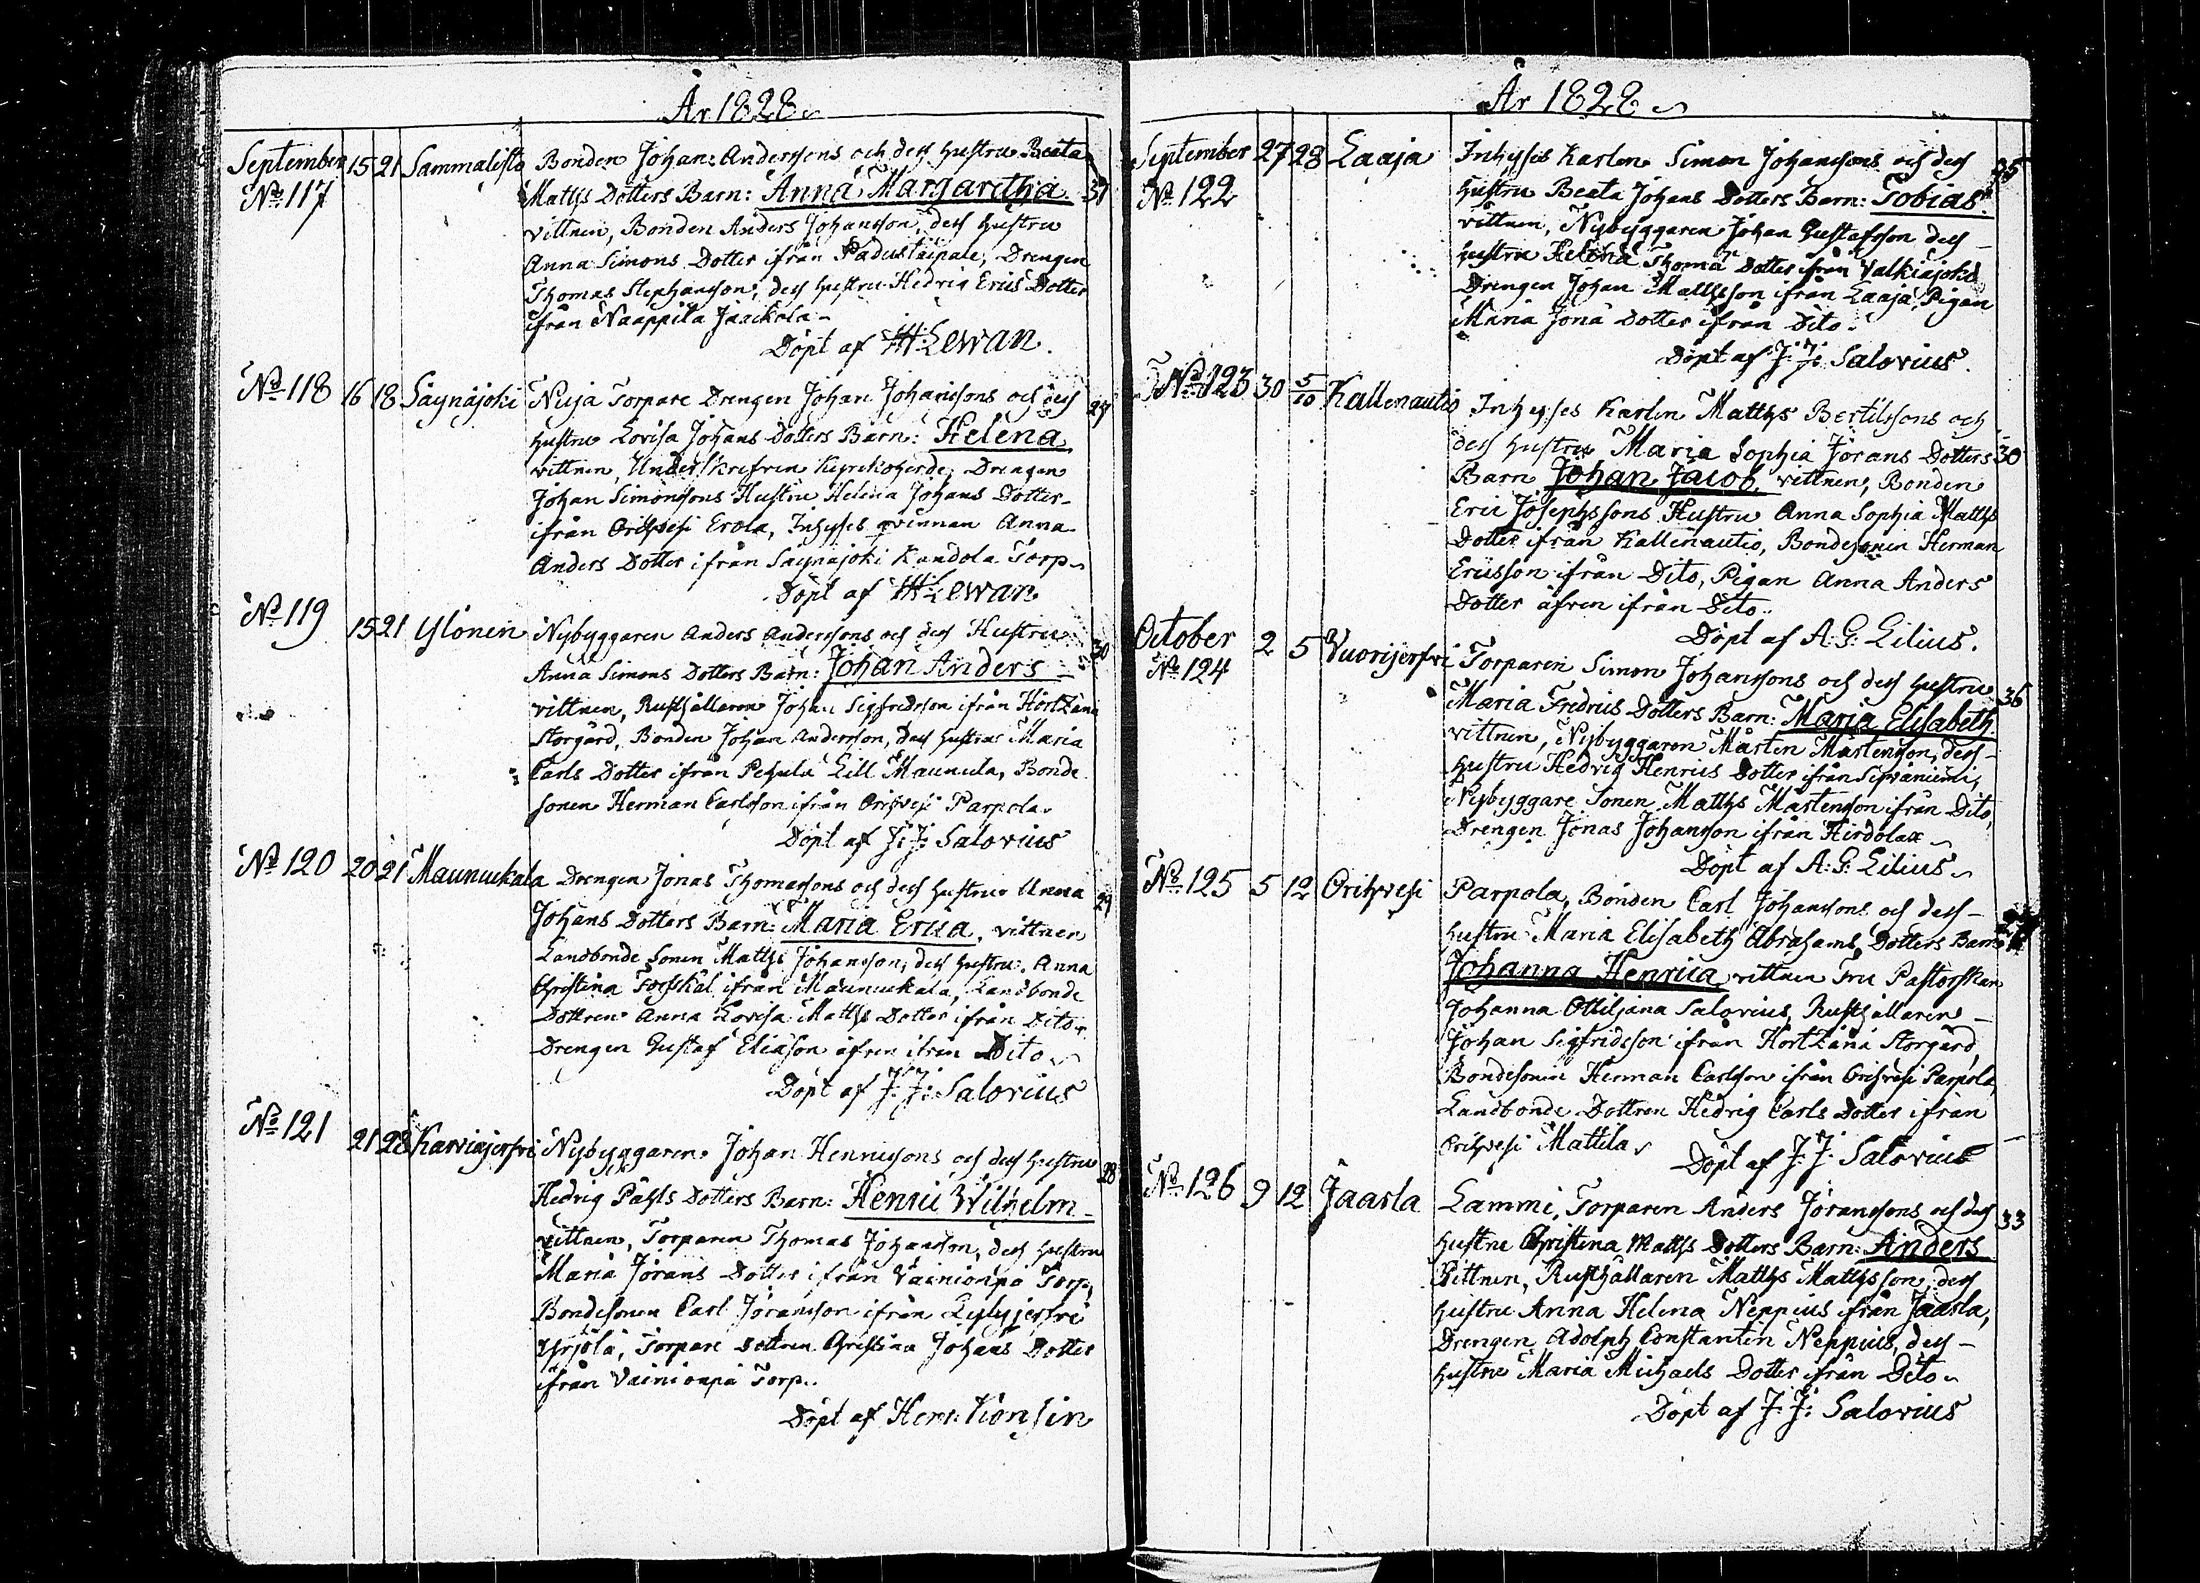 År 1828
September 15 21 Sammalisto Bonden Johan Anderssons och dess hustru Beata
No 117 Matths Dotters Barn: Anna Margaretha. 31
vittnen, Bonden Anders Johansson, dess hustru
Anna Simons Dotter ifrån Padustaipale, Drengen
Thomas Stephansson, dess hustru Hedvig Erics Dotter
ifrån Naappila Jaackola
Döpt af HLewan.
No 118 16 18 Säynäjoki Nuja Torpare Drengen Johan Johanssons och dess 27
hustru Lovisa Johans Dotters Barn: Helena
vittnen, Drengen
Johan Simonssons Hustru Helena Johans Dotter
ifrån Orihvesi Erola, Inhyses qvinnan Anna
Anders Dotter ifrån Säynäjoki Kandola Torp
Döpt af HLewan
No 119 15 21 Ylönen Nybyggaren Anders Anderssons och dess Hustru 30
Anna Simons Dotters Barn: Johan Anders
vittnen, Rusthållaren Johan Sigfridsson ifrån Hörtzänä
Storgård, Bonden Johan Andersson, dess hustru Maria
Carls Dotter ifrån Pehula Lill Maunula, Bonde
sonen Herman Carlsson ifrån Orihvesi Parpola
Döpt af J: J: Salovius
No 120 20 21 Maunukala Drengen Jonas Thomassons och dess hustru Anna 29
Johans Dotters Barn: Maria Erica, vittnen
Landbonde Sonen Matths Johansson, dess hustru Anna
Christina Forsskål ifrån Maunukala, Landbonde
Dottren Anna Lovisa Matths Dotter ifrån Dito
Drengen Gustaf Eliasson äfven ifrån Dito
Döpt af J: J: Salovius
No 121 21 28 Karviajerfvi Nybyggaren Johan Henricsons och dess hustru 28
Hedvig Påhls Dotters Barn: Henric Wilhelm
vittnen, Torparen Thomas Johansson, dess hustru
Maria Jörans Dotter ifrån Vainionpä Torp,
Bondesonen Carl Jöransson ifrån
Yrjölä, Torpare Dottren Christina Johans Dotter
ifrån Vainionpä Torp.
Döpt af Henr: Kionlin
År 1828
September 27 28 Laaja Inhyses Karlen Simon Johanssons och dess 35
No 122 hustru Beata Johans Dotters Barn: Tobias.
vittnen, Nybyggaren Johan Gustafsson dess
hustru Helena Thomæ Dotter ifrån Valkiajoki
Drengen Johan Matthsson ifrån Laaja, Pigan
Maria Jonæ Dotter ifrån Dito.
Döpt af J: J: Salovius.
No 123 30 5/10 Kallenautio Inhyses Karlen Matths Bertilssons och
dess hustru Maria Sophia Jörans Dotters 30
Barn Johan Jacob, vittnen, Bonden
Eric Josephssons Hustru Anna Sophia Matths
Dotter ifrån Kallenautio, Bondesonen Herman
Ericsson ifrån Dito, Pigan Anna Anders
Dotter äfven ifrån Dito.
Döpt af A: G: Lilius.
October 2 5 Vuorijerfvi Torparen Simon Johanssons och dess hustru 36
No 124 Maria Fredrics Dotters Barn: Maria Elisabeth.
vittnen, Nybyggaren Mårten Mårtensson, dess
hustru Hedvig Henrics Dotter ifrån
Nybyggare Sonen Matths Mårtensson ifrån Dito,
Drengen Jonas Johansson ifrån Hirdolax
Döpt af A: G: Lilius
No 125 5 12 Orihvesi Parpola, Bonden Carl Johanssons och dess
hustru Maria Elisabeth Abrahams Dotters Barn
Johanna Henrica vittnen Fru Pastorskan
Johanna Ottiljana Salovius, Rusthållaren
Johan Sigfridsson ifrån Hörtzänä Storgård,
Bondesonen Herman Carlsson ifrån Orihvesi Parpola,
Landbonde Dottren Hedvig Carls Dotter ifrån
Orihvesi Mattila
Döpt af J: J: Salovius
No 126 9 12 Jaarla Lammi, Torparen Anders Jöranssons och dess 33
hustru Christina Matths Dotters Barn: Anders
Vittnen, Rusthållaren Matths Matthsson, dess
hustru Anna Helena Neppius ifrån Jaarla,
Drengen Adolph Constantin Neppius, dess
hustru Maria Michaels Dotter ifrån Dito
Döpt af J: J: Salovius